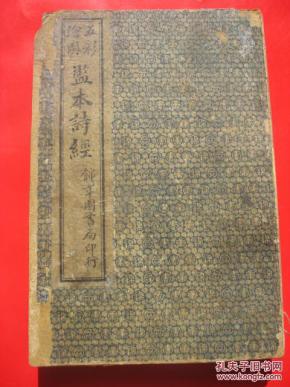 五彩
繪圖
監本詩經
錦章圖書局印行
孔夫子旧书网